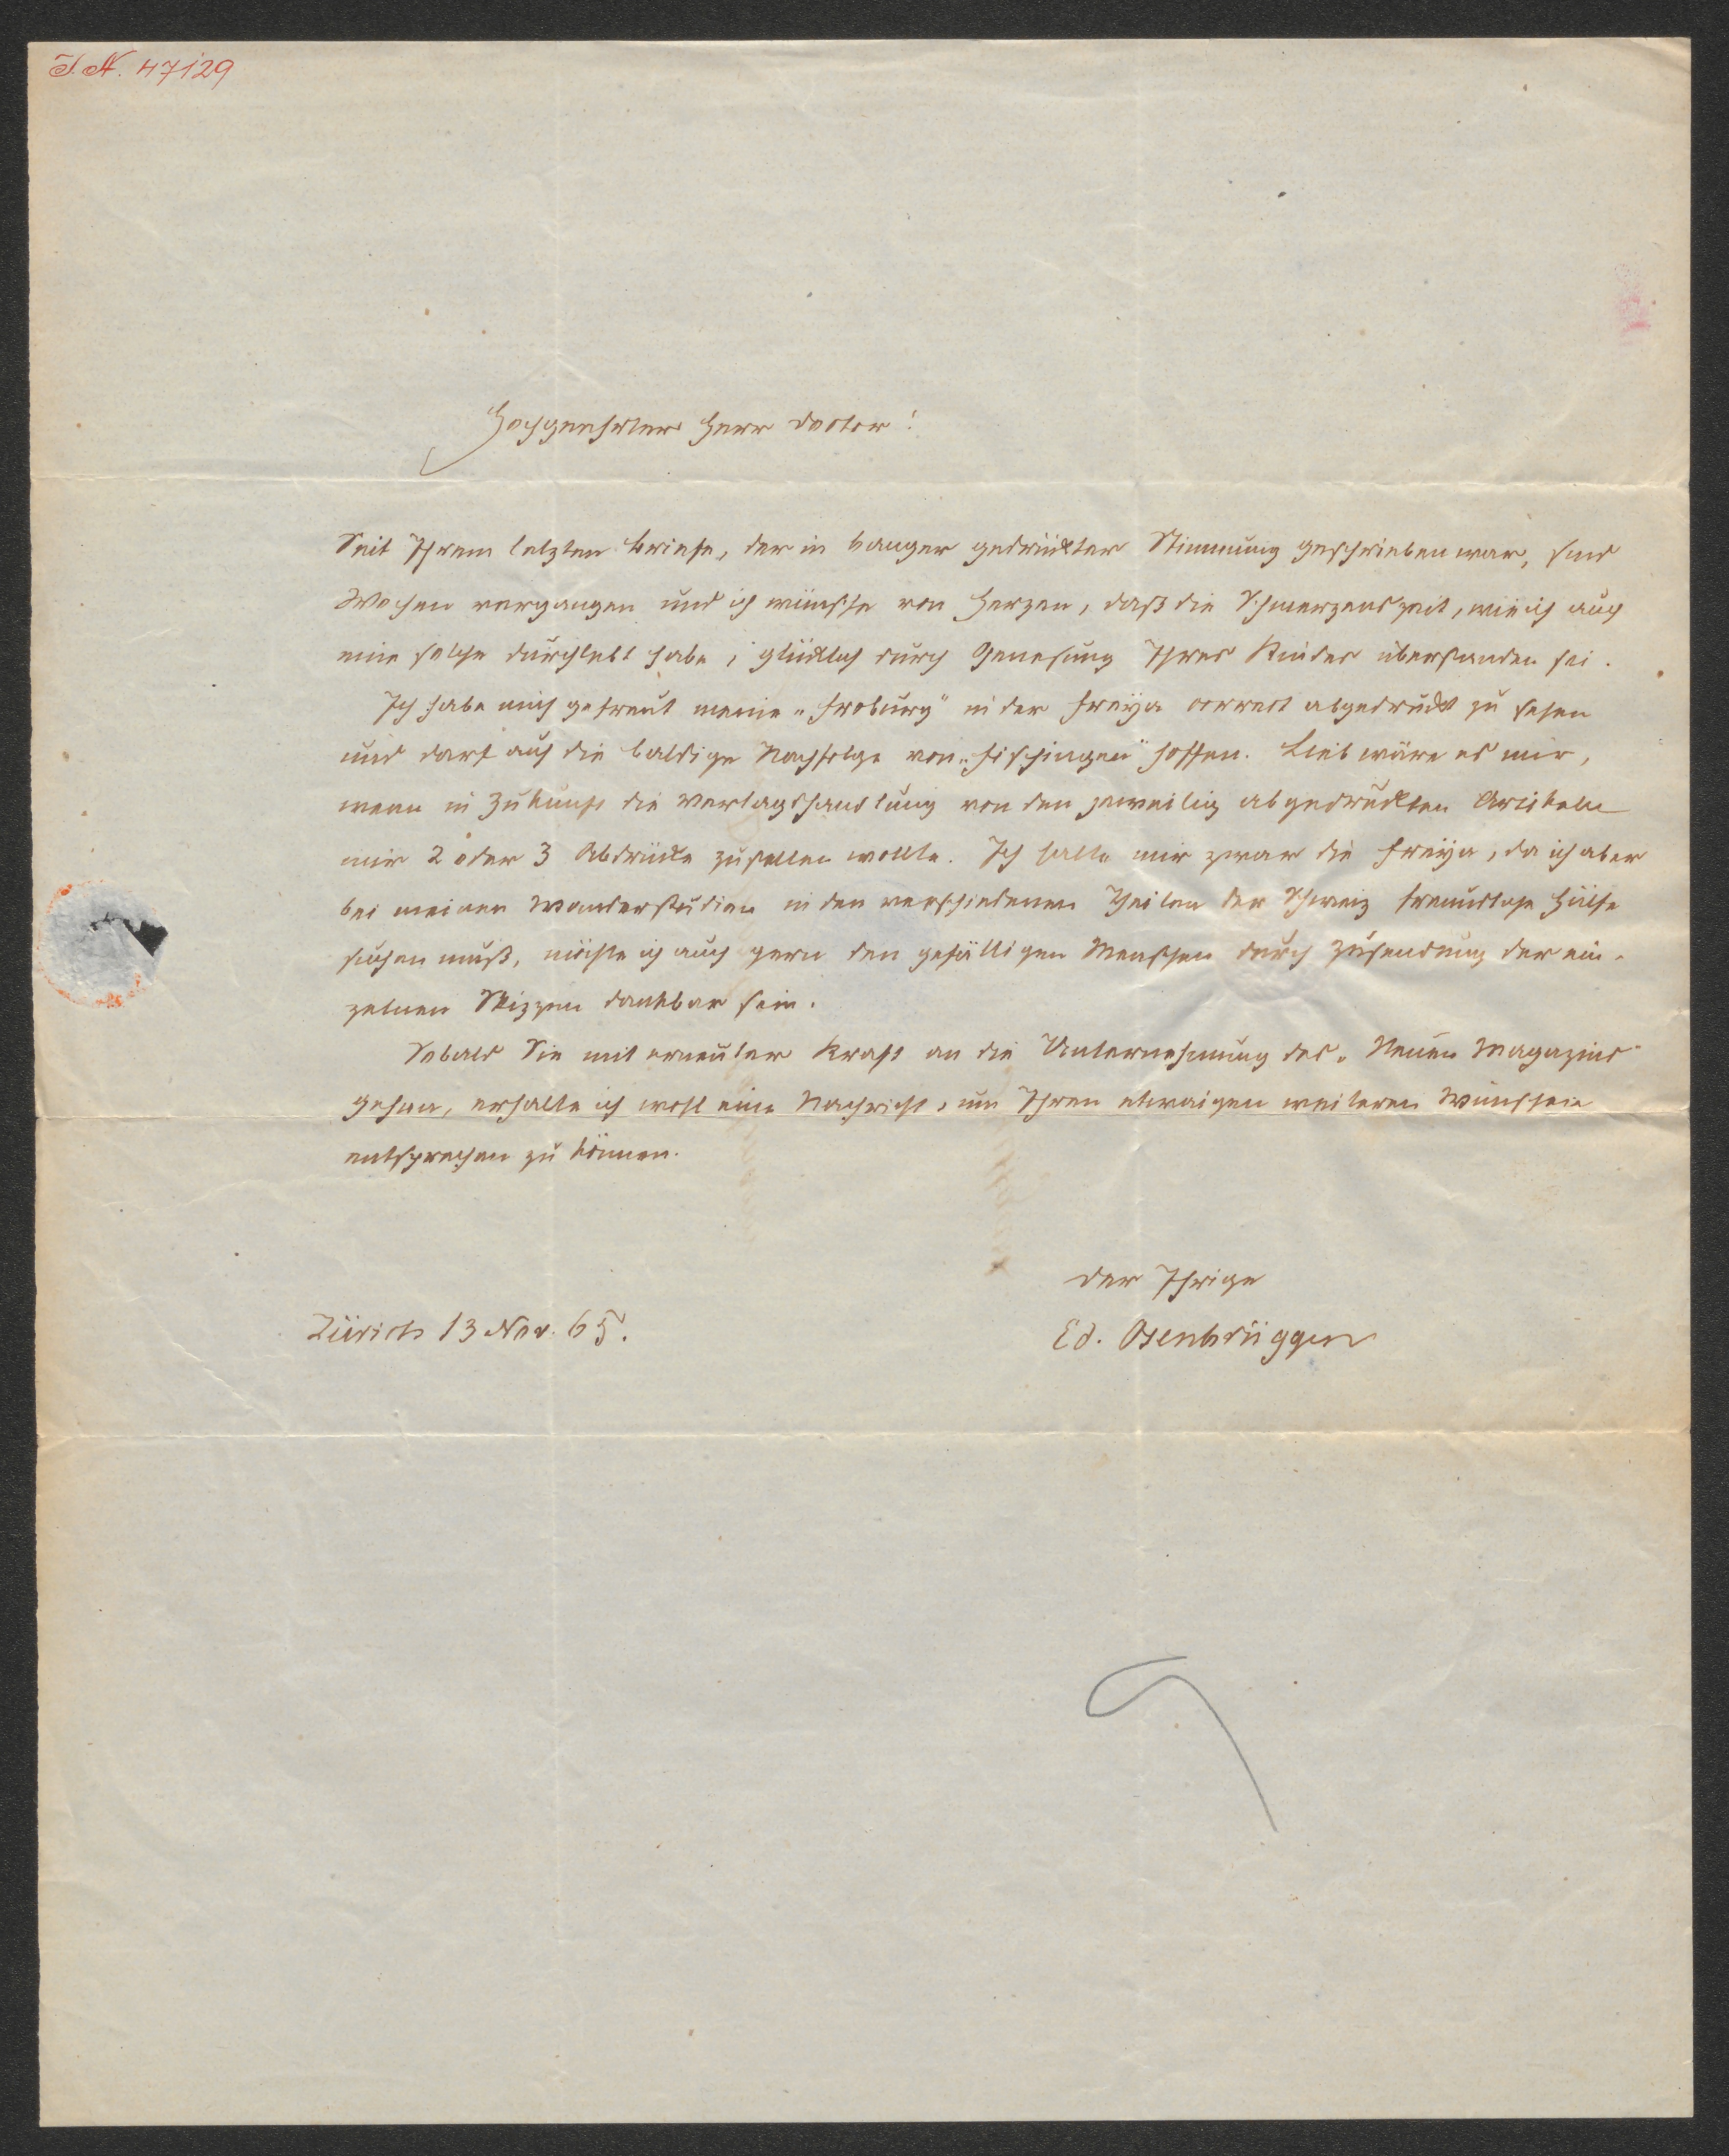 I. N. 47129
Hochgeehrter Herr Doctor!
Seit Ihrem letzten Briefe, der in banger gedrückter Stimmung geschrieben war, sind
Wochen vergangen und ich wünsche von Herzen, daß die Schmerzenszeit, wie ich auch
eine solche durchlebt habe, glücklich durch Genesung Ihres Kindes überstanden sei.
Ich habe mich gefreut meine „Froburg" in der Freya correct abgedruckt zu sehen
und darf auf die baldige Nachfolge von „Fischingen" hoffen. Lieb wäre es mir,
wenn in Zukunft die Verlagshandlung von den jeweilig abgedruckten Artikeln
mir 2 oder 3 Abdrücke zustellen wollte. Ich halte mir zwar die Freya, da ich aber
bei meinen Wanderstudien in den verschiedenen Theilen der Schweiz freundliche Hülfe
suchen muß, möchte ich auch gern den gefälligen Menschen durch Zusendung der ein-
zelnen Skizzen dankbar sein.
Sobald Sie mit erneuter Kraft an die Unternehmung des „Neuen Magazins"
gehen, erhalte ich wohl eine Nachricht, um Ihren etwaigen weiteren Wünschen
entsprechen zu können.
Der Ihrige
Zürich 13 Nov. 65.
Ed. Osenbrüggen